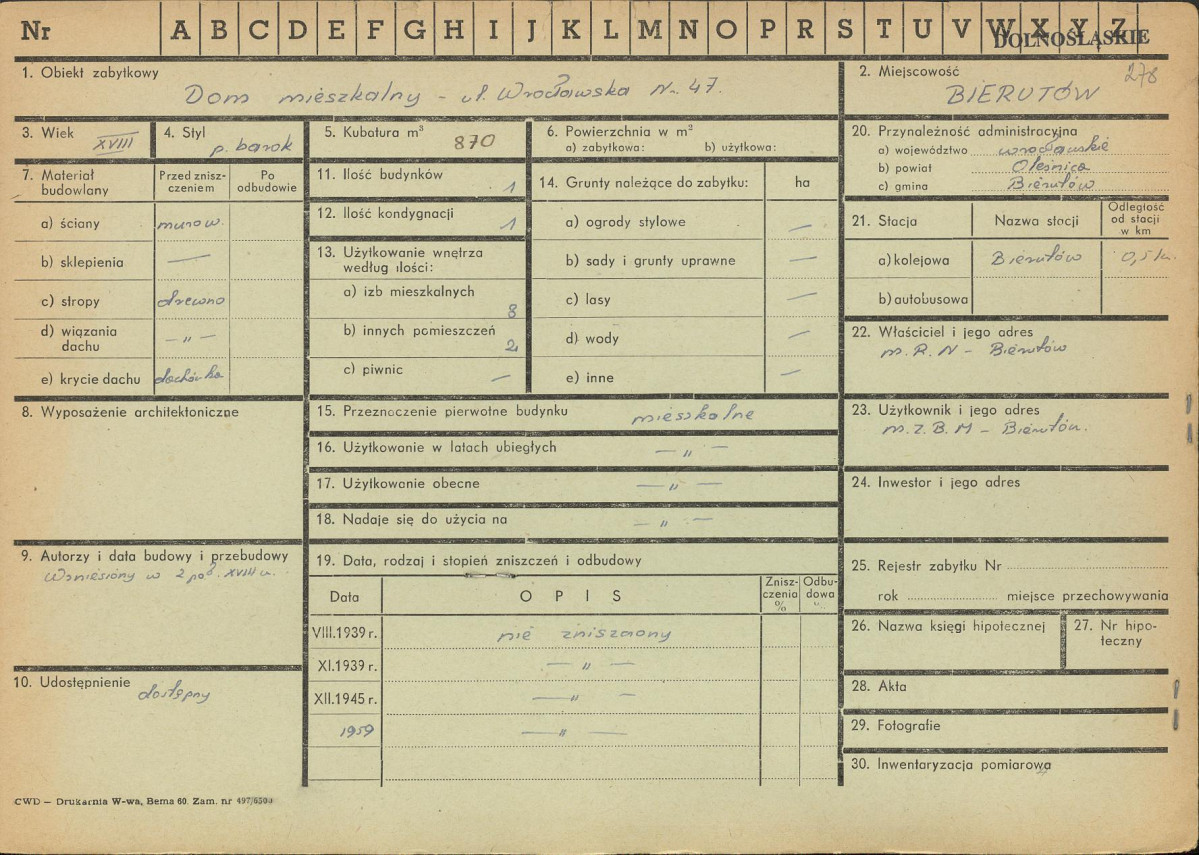 Nr A B C D E F G H I J K L M N O P R S T U V W X Y Z
DOLNOŚLĄSKIE
1. Obiekt zabytkowy
Dom mieszkalny - ul. Wrocławska Nr. 47.
2. Miejscowość
278
BIERUTÓW
3. Wiek
XVIII
4. Styl
p. barok
5. Kubatura m³
870
6. Powierzchnia w m²
a) zabytkowa: b) użytkowa:
20. Przynależność administracyjna
a) województwo wrocławskie
b) powiat Oleśnica
c) gmina Bierutów
7. Materiał budowlany
Przed zniszczeniem
Po odbudowie
a) ściany murow.
b) sklepienia —
c) stropy drewno
d) wiązania dachu — „ —
e) krycie dachu dachówka
11. Ilość budynków 1
12. Ilość kondygnacji 1
13. Użytkowanie wnętrza według ilości:
a) izb mieszkalnych 8
b) innych pomieszczeń 2
c) piwnic —
14. Grunty należące do zabytku: ha
a) ogrody stylowe —
b) sady i grunty uprawne —
c) lasy —
d) wody —
e) inne —
21. Stacja
Nazwa stacji
Odległość od stacji w km
a) kolejowa Bierutów 0,5 km.
b) autobusowa
22. Właściciel i jego adres
M. R. N - Bierutów
8. Wyposażenie architektoniczne
15. Przeznaczenie pierwotne budynku mieszkalne
16. Użytkowanie w latach ubiegłych — „ —
17. Użytkowanie obecne — „ —
18. Nadaje się do użycia na — „ —
23. Użytkownik i jego adres
M. Z. B. M - Bierutów.
24. Inwestor i jego adres
9. Autorzy i data budowy i przebudowy
Wzniesiony w 2 poł. XVIII w.
19. Data, rodzaj i stopień zniszczeń i odbudowy
Data
OPIS
Zniszczenia %
Odbudowa
VIII.1939 r. nie zniszczony
XI.1939 r. — „ —
XII.1945 r. — „ —
1959 — „ —
10. Udostępnienie
dostępny
25. Rejestr zabytku Nr
rok miejsce przechowywania
26. Nazwa księgi hipotecznej
27. Nr hipoteczny
28. Akta
29. Fotografie
30. Inwentaryzacja pomiarowa
CWD — Drukarnia W-wa, Bema 60. Zam. nr 497/6500